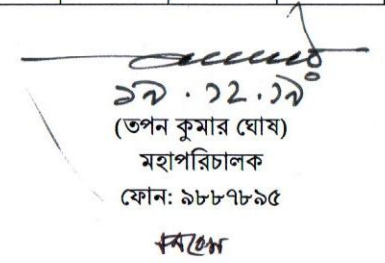 ১৯.১২.১৯
(তপন কুমার ঘোষ)
মহাপরিচালক
ফোন: ৯৮৮৭৮৯৫